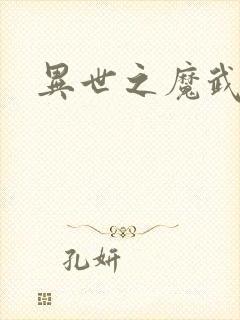 異世之魔武
孔妍